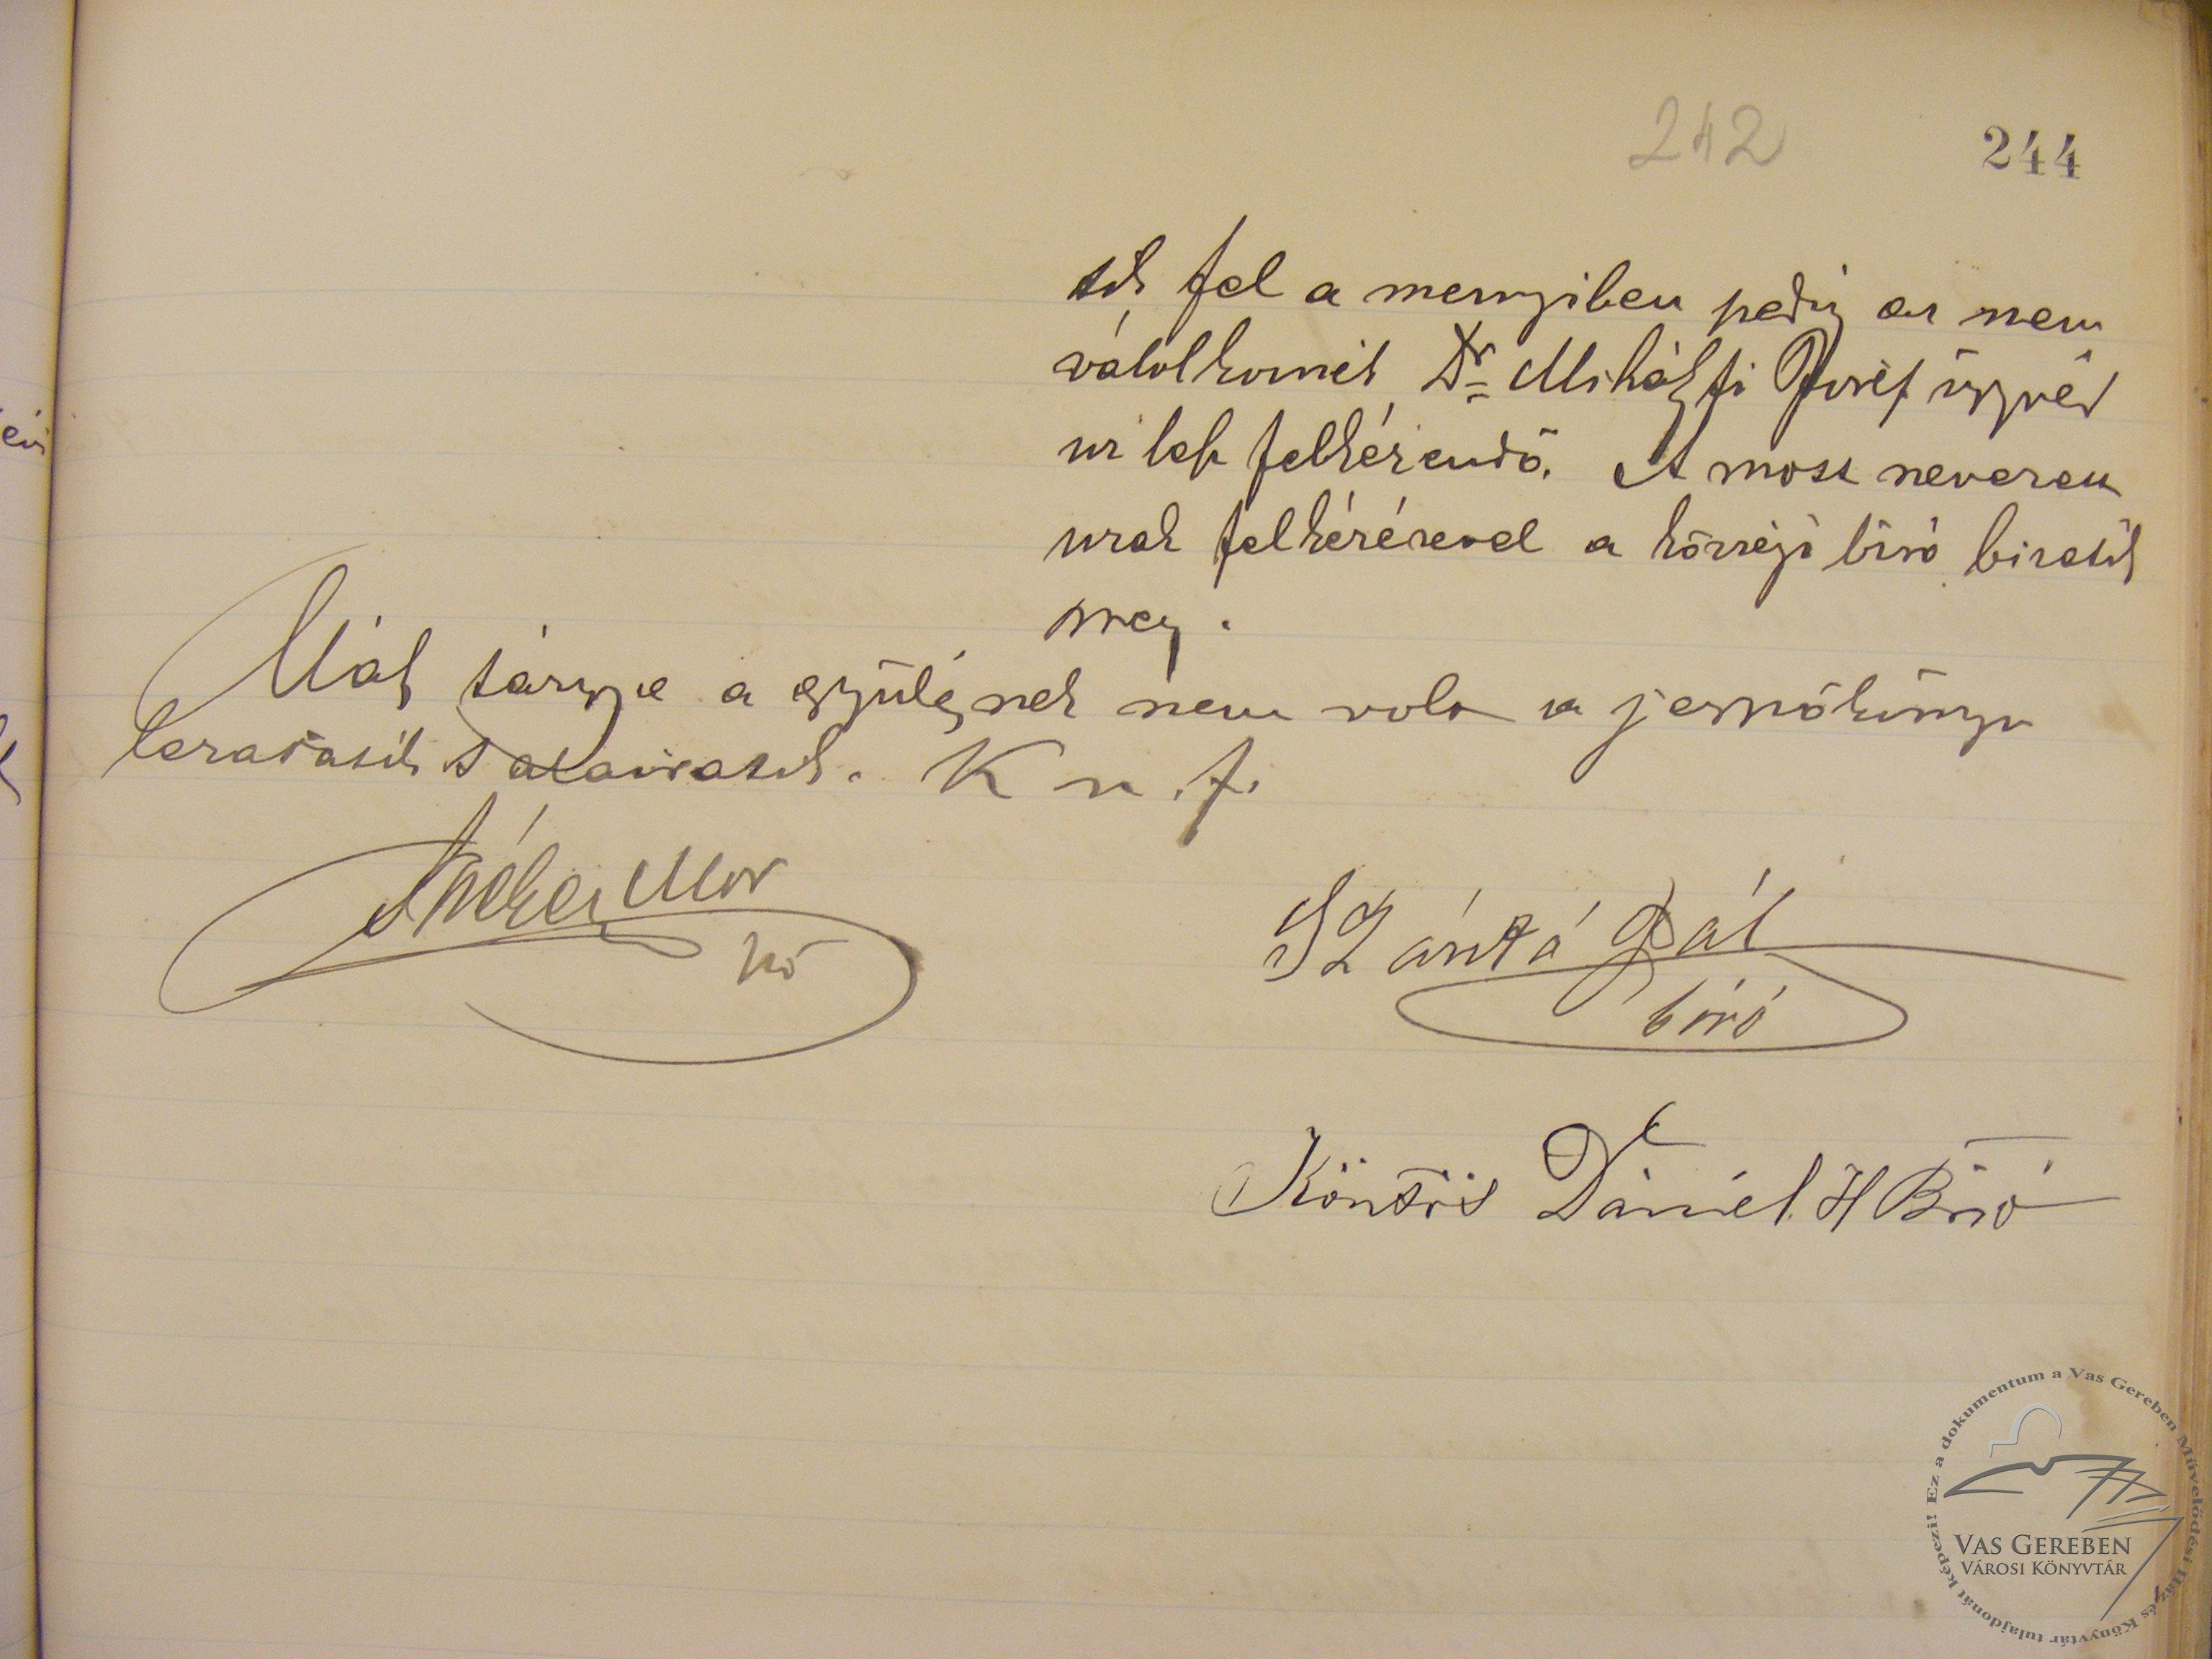 242
244
tik fel a mennyiben pedig az nem
válolkoznék Dr. Mihályfi József ügyvéd
ur lesz felkérendő. A most nevezett
urak felkérésével a községi biró bizatik
meg.
Más tárgya a gyülésnek nem volt a jegyzőkönyv
lezáratik s aláiratik. K m. f.
Mór
Szántó Pál
biró
Köntös Dániel H Biró
Ez a dokumentum a Vas Gereben Művelődési Ház és Könyvtár tulajdonát képezi!
VAS GEREBEN
VÁROSI KÖNYVTÁR